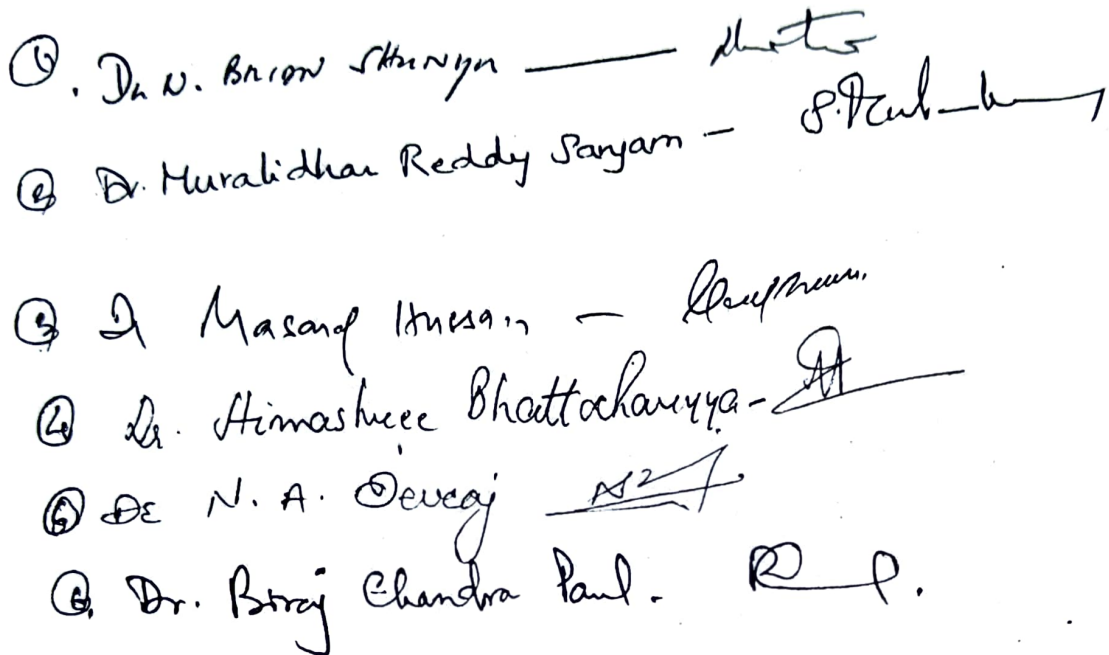 ①. Dr N. Brion Shunya —
② Dr. Muralidhar Reddy Sanyam -
③ Dr Masand Hussain -
④ Dr. Himashree Bhattacharyya -
⑤ Dr N. A. Devraj
⑥. Dr. Biraj Chandra Paul.